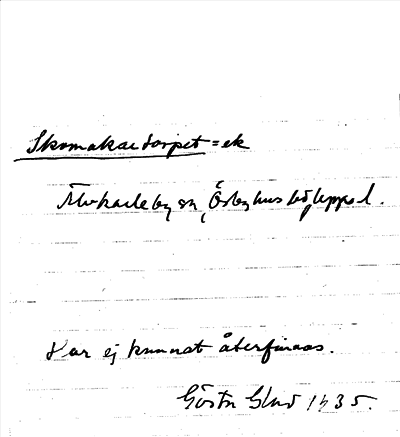 Skomakaretorpet = ek
Älvkarleby sn, Örbyhus hd, Uppl.
Har ej kunnat återfinnas.
Gösta 1935.